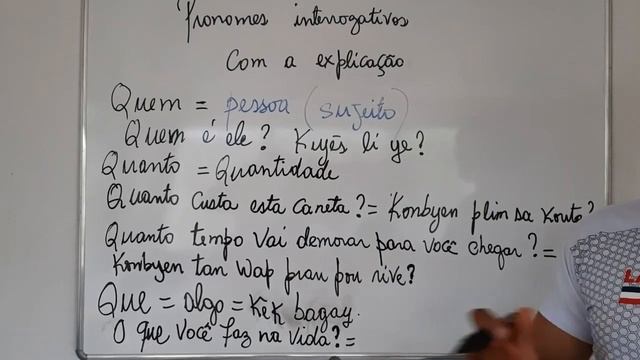 Pronomes interrogativos
Com a explicação
Quem = pessoa (sujeito)
Quem é ele? Kiyès li ye?
Quanto = Quantidade
Quanto Custa esta caneta? = Konbyen plim sa koute?
Quanto tempo vai demorar para você chegar? =
Konbyen tan wap pran pou rive?
Que = algo = kèk bagay.
O que você faz na vida? =